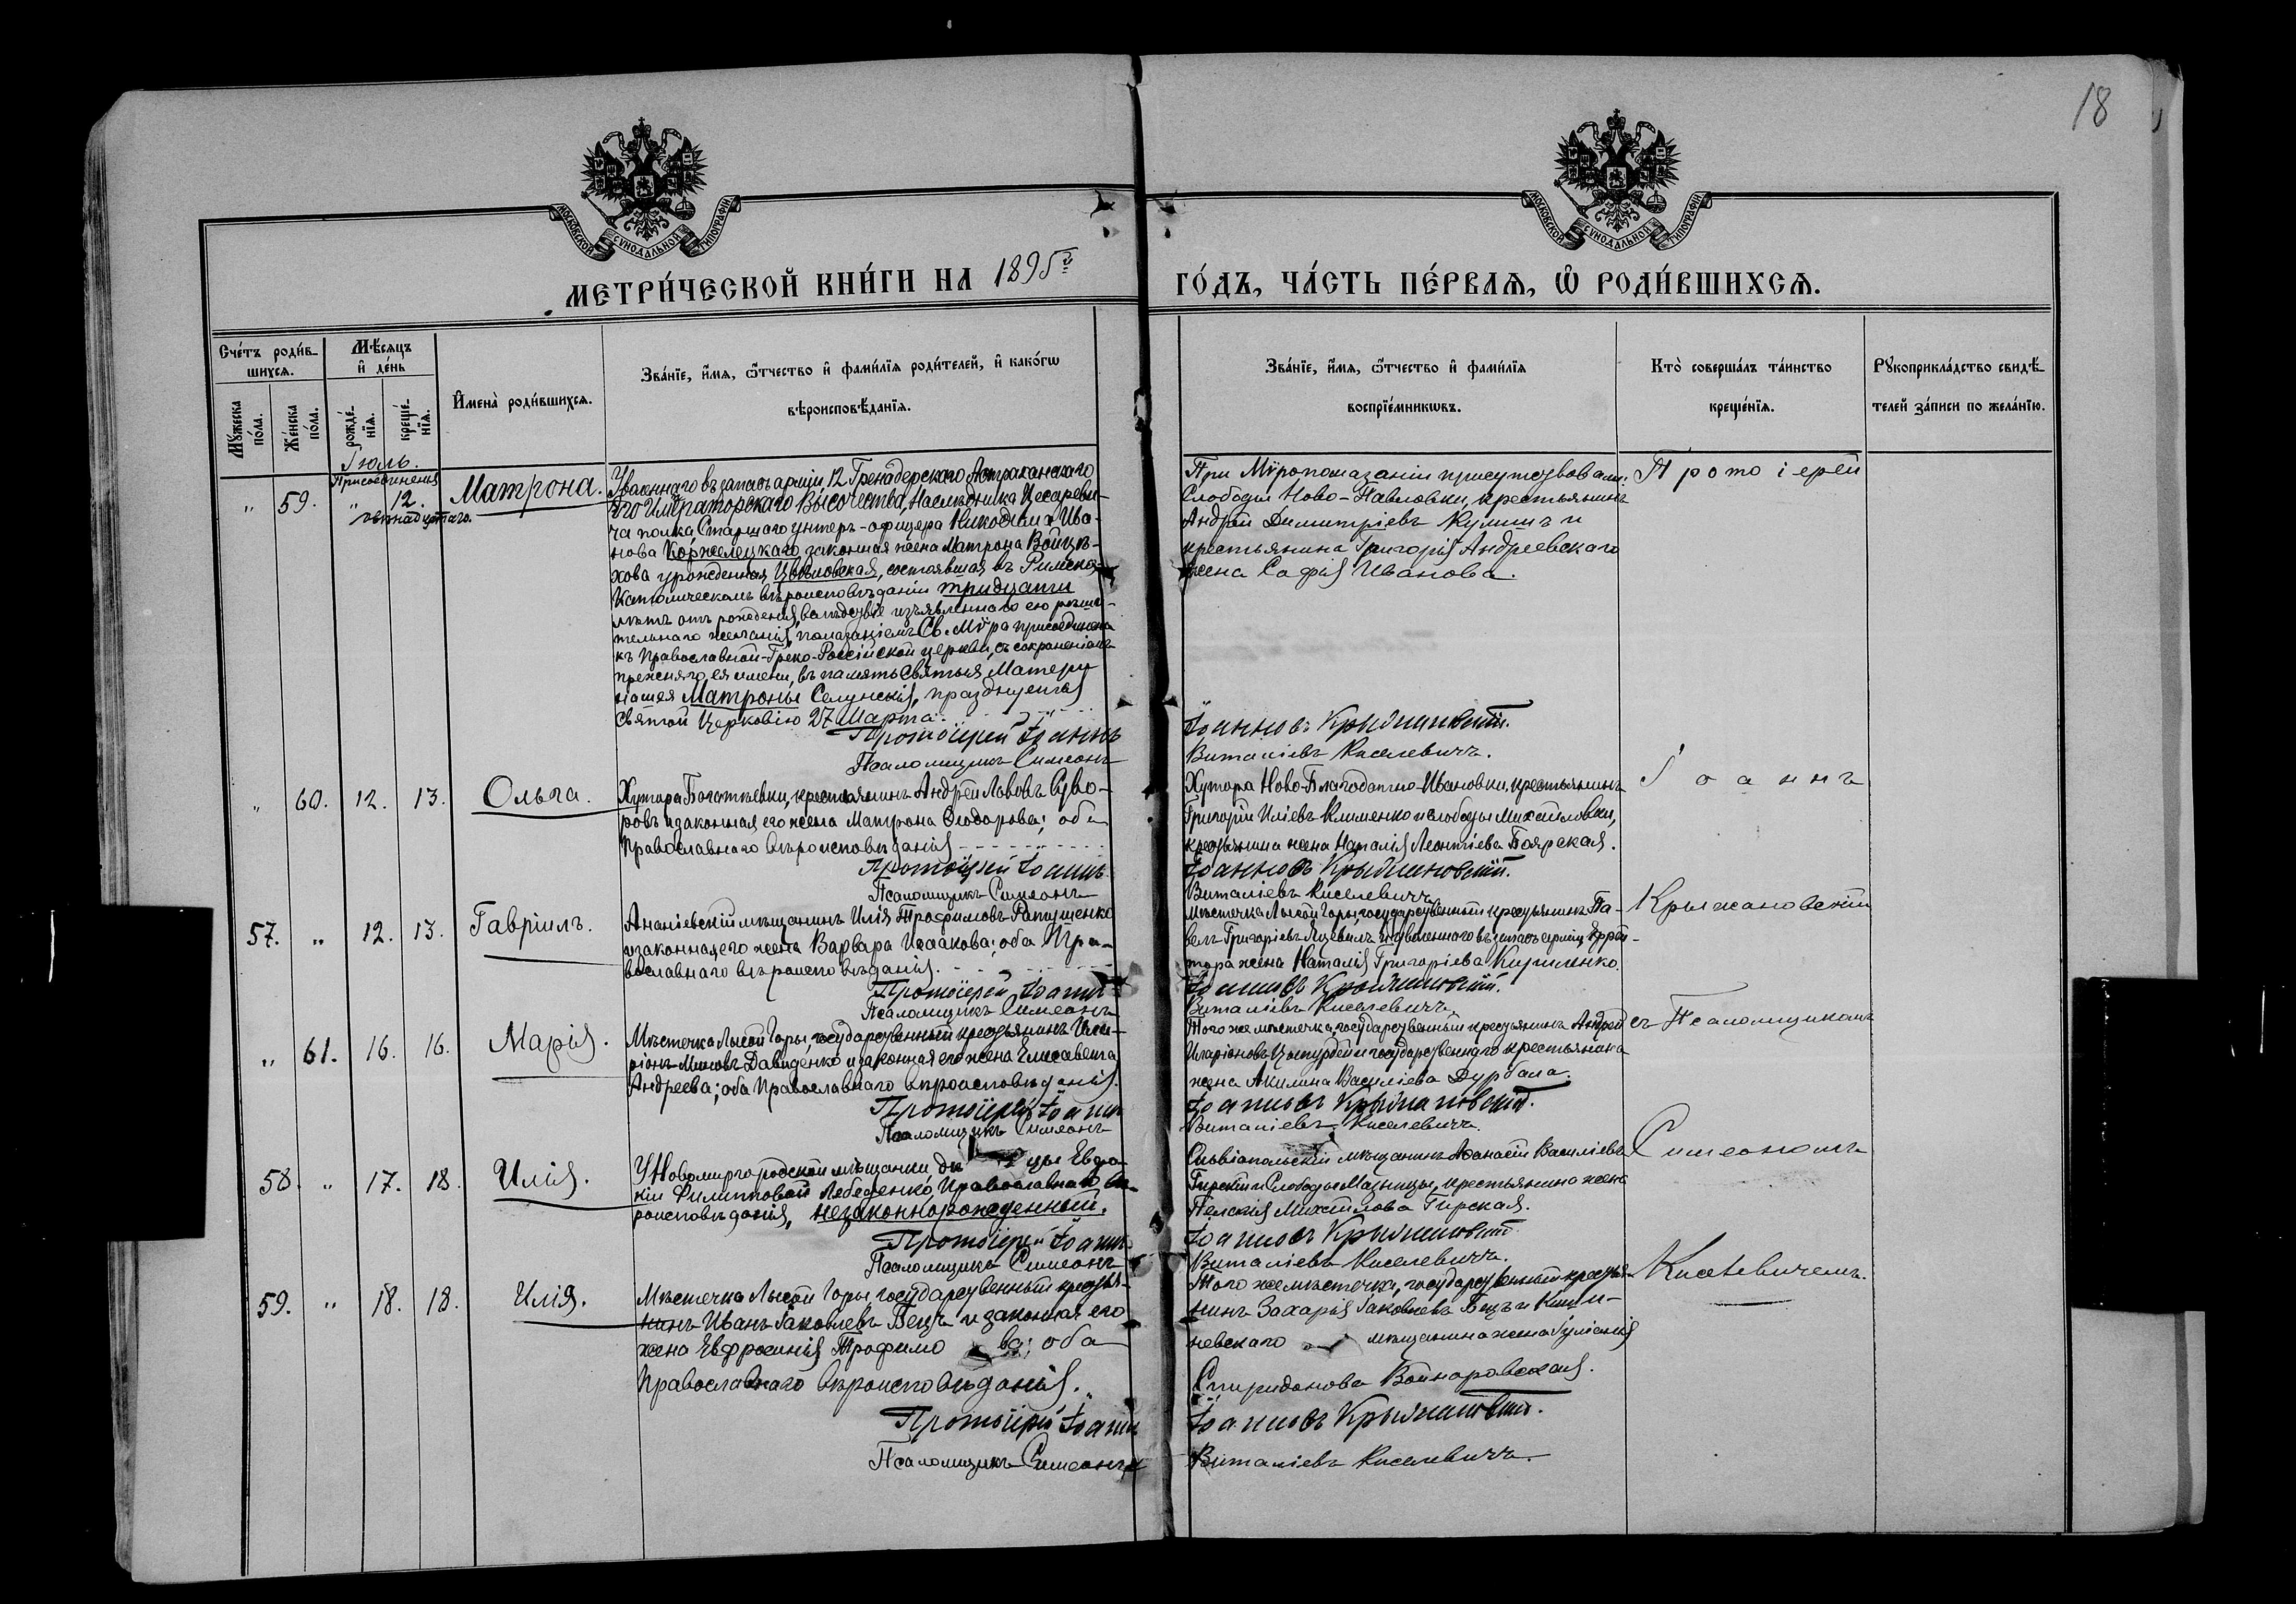 18
МОСКОВСКОЙ СѴНОДАЛЬНОЙ ТИПОГРАФІИ
МОСКОВСКОЙ СѴНОДАЛЬНОЙ ТИПОГРАФІИ
МЕТРИ́ЧЕСКОЙ КНИ́ГИ НА 1895 г. ГО́ДЪ, ЧА́СТЬ ПЕ́РВАѦ, Ѡ РОДИ́ВШИХСѦ.
Сче́тъ роди́в-
шихся.
Му́жеска по́ла.
Же́нска по́ла.
Мѣ́сяцъ и де́нь
рожде́-
нія.
креще́-
нія.
Имена̀ роди́вшихся.
Зва́ніе, и́мя, ѻ́тчество и фами́лія роди́телей, и како́гѡ
вѣроисповѣ́данія.
Зва́ніе, и́мя, ѻ́тчество и фами́лія
воспріе́мникѡвъ.
Кто̀ соверша́лъ та́инство
креще́нія.
Рꙋкоприкла́дство свидѣ́-
телей за́писи по жела́нію.
Іюль.
Присоединенія
" 59. " 12. Матрона.
двѣнадцатаго.
Уволеннаго въ запасъ арміи, 12 Гренадерскаго Астраханскаго
Его Императорскаго Высочества, Наслѣдника Цесареви-
ча полка, Старшаго унтеръ-офицера Никодима Ива-
нова Коржелецкаго законная жена Матрона Войцѣ-
хова урожденная состоявшая въ Римско-
Католическомъ вѣроисповѣданіи тридцати
лѣтъ отъ рожденія, вслѣдствіе изъявленнаго ею рѣши-
тельнаго желанія, помазаніемъ Св. Мѵра присоединена
къ Православной-Греко-Россійской церкви, съ сохраненіемъ
прежняго ея имени, въ память Святыя Матери
нашея Матроны Селунскія, празднуемыя
Святой Церковію 27 Марта.
Протоіерей Іоаннъ
Псаломщикъ Симеонъ
При Мѵропомазаніи присутствовали:
Слободы Ново-Павловки, крестьянинъ
Андрей Димитріевъ Кулишъ и
крестьянина Григорія Андреевскаго
жена Софія Иванова.
Іоанновъ Крыжановскій.
Виталіевъ Киселевичъ.
Протоіерей
" 60. 12. 13. Ольга.
Хутора Богатыевки, крестьянинъ Андрей Львовъ Суво-
ровъ и законная его жена Матрона Ѳеодорова; оба
Православнаго вѣроисповѣданія
Протоіерей Іоаннъ
Псаломщикъ Симеонъ
Хутора Ново-Благодатно-Ивановки, крестьянинъ
Григорій Иліевъ Клименко и слободы Михайловки,
крестьянина жена Наталія Леонтіева Боярская.
Іоанновъ Крыжановскій.
Виталіевъ Киселевичъ.
Іоаннъ
57. " 12. 13. Гавріилъ.
Ананіевскій мѣщанинъ Илія Трофимовъ Рапушенко
и законная его жена Варвара Исаакова; оба Пра-
вославнаго вѣроисповѣданія.
Протоіерей Іоаннъ
Псаломщикъ Симеонъ
Мѣстечка Лысой Горы, государственный крестьянинъ Па-
велъ Григоріевъ и уволеннаго въ запасъ арміи, Ефрей-
тора жена Наталія Григоріева Кириленко.
Іоанновъ Крыжановскій.
Виталіевъ Киселевичъ.
Крыжановскій
" 61. 16. 16. Марія.
Мѣстечка Лысой Горы, государственный крестьянинъ Ила-
ріонъ Миновъ Давиденко и законная его жена Елисавета
Андреева; оба Православнаго вѣроисповѣданія.
Протоіерей Іоаннъ
Псаломщикъ Симеонъ
Того же мѣстечка, государственный крестьянинъ Андрей
Иларіоновъ и государственнаго крестьянина
жена Акилина Василіева Дурбала.
Іоанновъ Крыжановскій.
Виталіевъ Киселевичъ.
съ Псаломщикомъ
58. " 17. 18. Илія.
У Новомиргородской мѣщанки, дѣ цы Евдо-
кіи Филипповой Лебеденко, Православнаго вѣ-
роисповѣданія, незаконнорожденный.
Протоіерей Іоаннъ
Псаломщикъ Симеонъ
Ольвіопольскій мѣщанинъ Аѳанасій Василіевъ
Гирскій и Слободы Мазницы, крестьянина жена
Пелагія Михайлова Гирская.
Іоанновъ Крыжановскій.
Виталіевъ Киселевичъ.
Симеономъ
59. " 18. 18. Илія.
Мѣстечка Лысой Горы, государственный крестья-
нинъ Иванъ Іаковлевъ Бецъ и законная его
жена Евфросинія Трофимо ва; оба
Православнаго вѣроисповѣданія.
Протоіерей Іоаннъ
Псаломщикъ Симеонъ
Того же мѣстечка, государственный крестья-
нинъ Захарія Іаковлевъ Бецъ и Киши-
невскаго мѣщанина жена Іуліанія
Спиридонова Войнаровская.
Іоанновъ Крыжановскій.
Виталіевъ Киселевичъ.
Киселевичемъ.